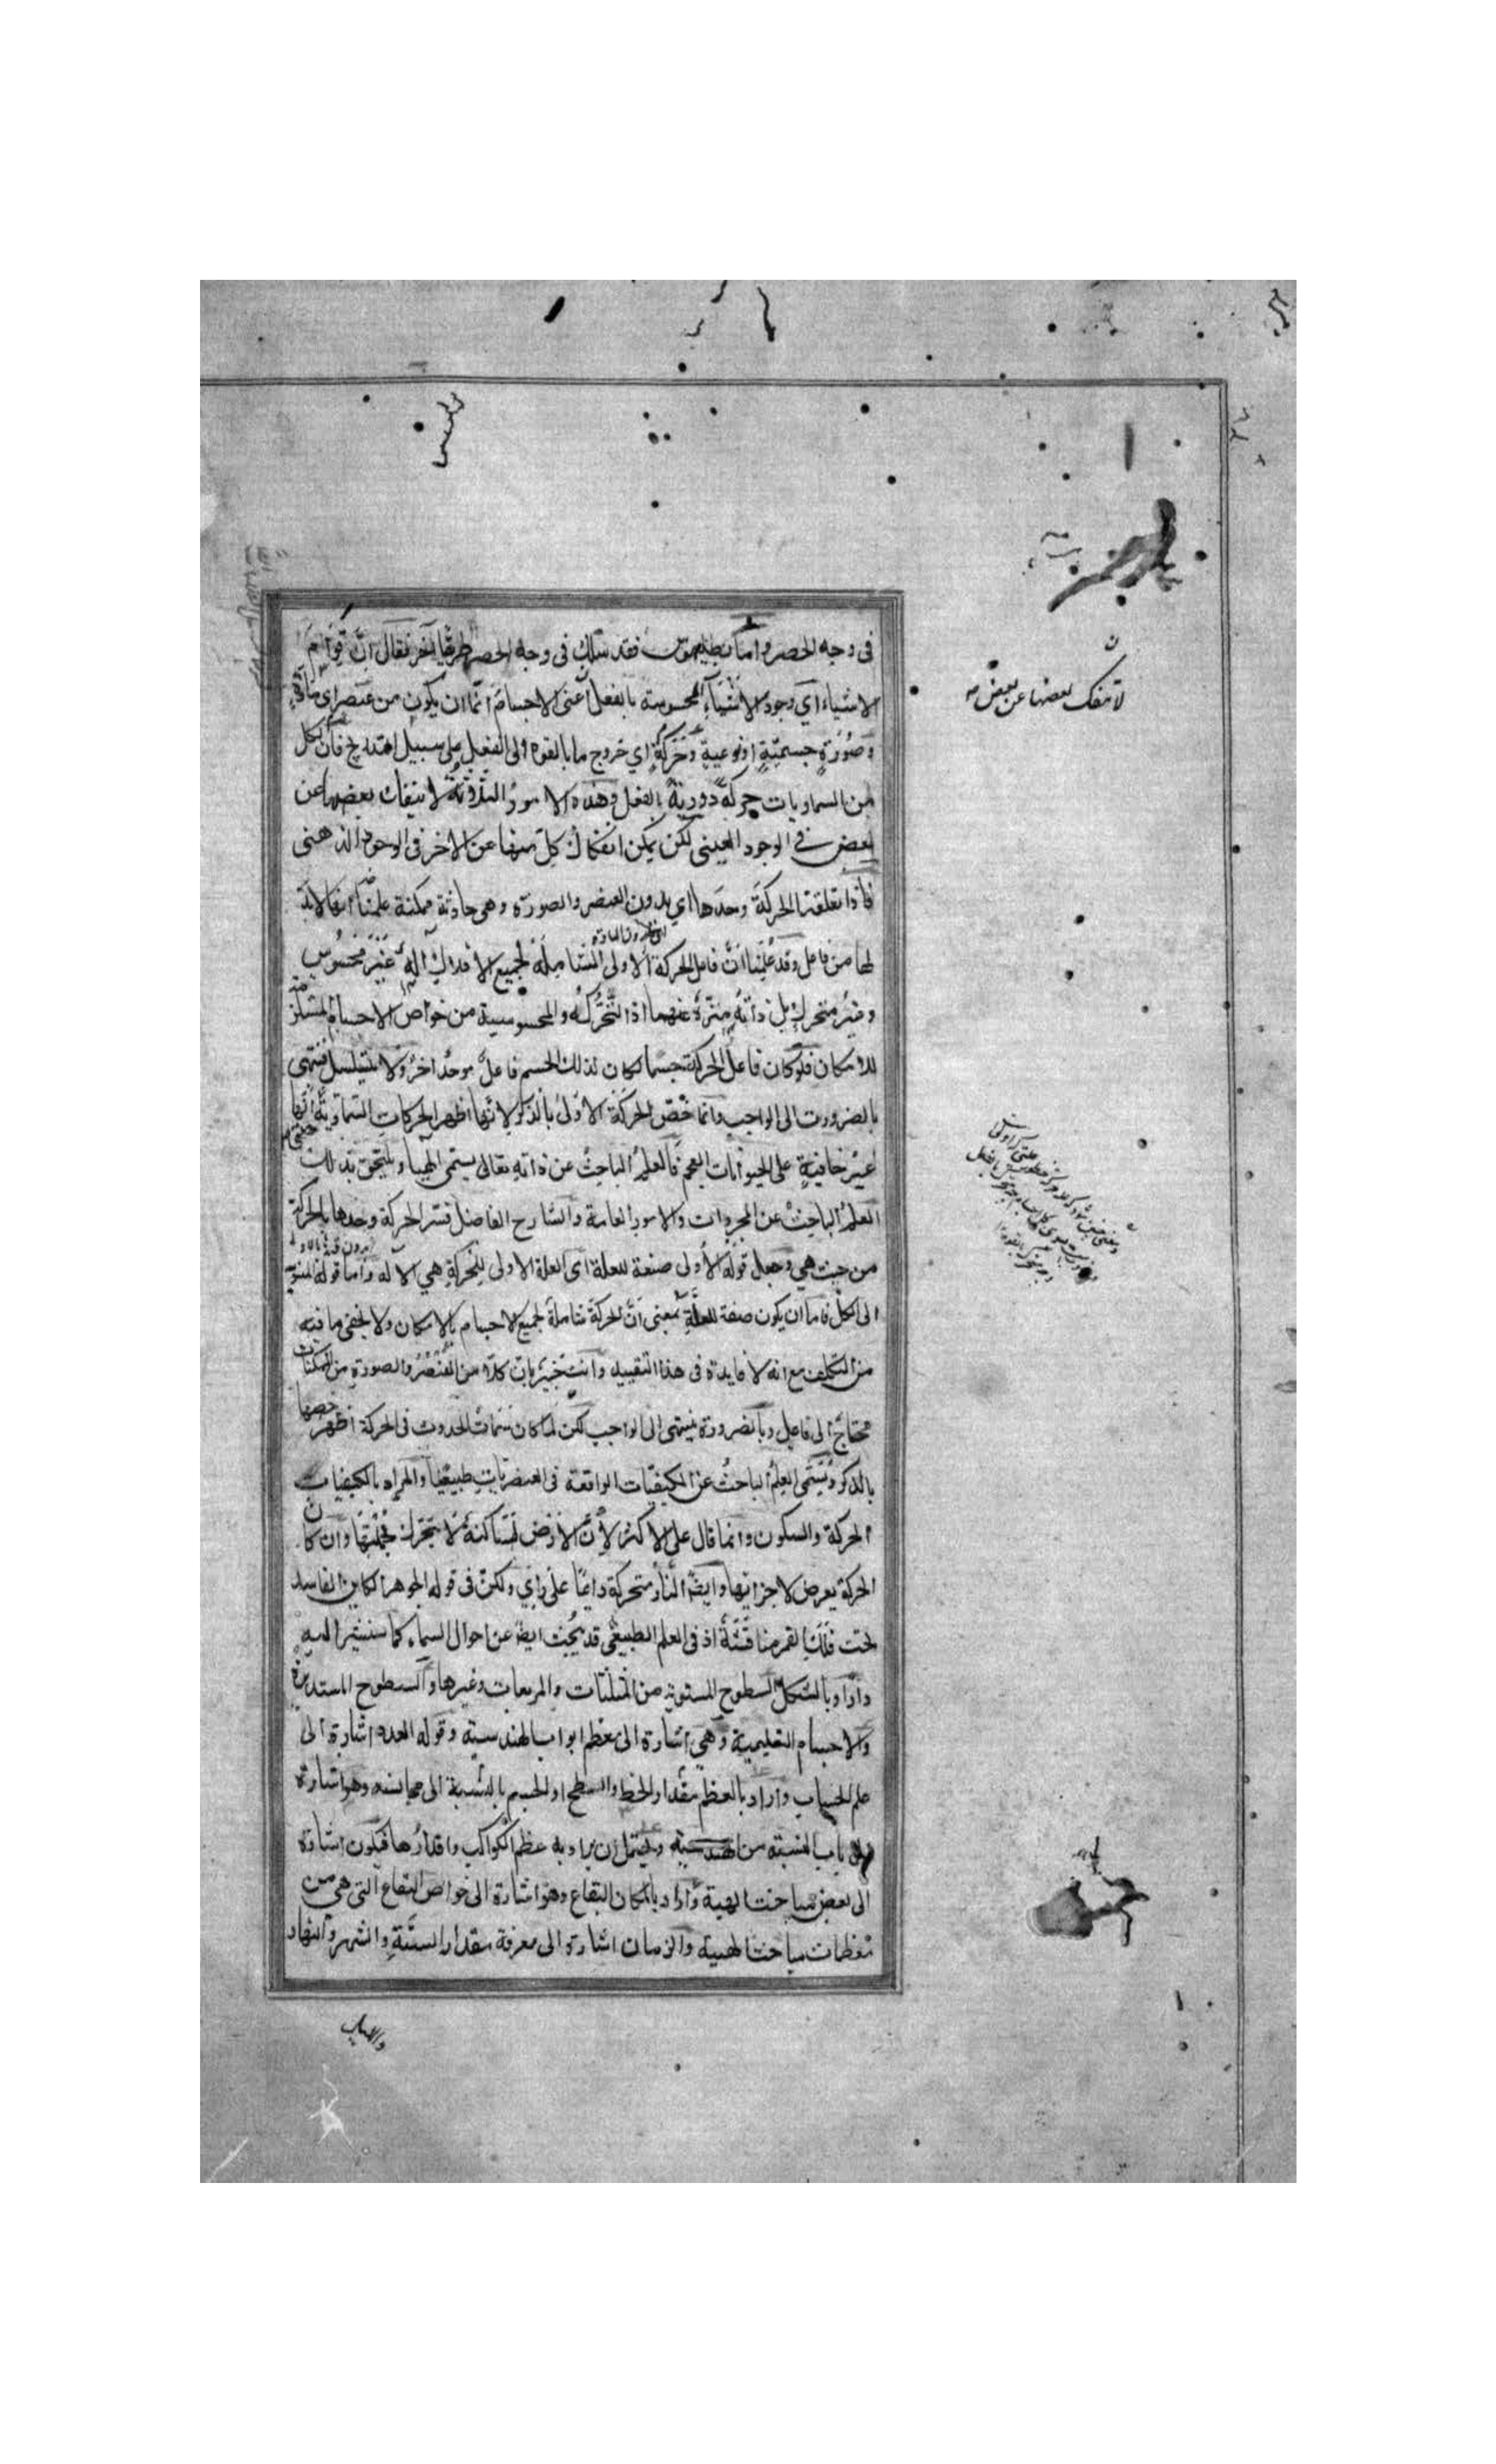 في وجه الحصر واما بطليموس فقد سلك في وجه الحصر طريقا آخر فقال ان قوام
الاشياء اي وجود الاشياء المحسوسة بالفعل اعنى الاجسام انما ان يكون من عنصر اي مادة
وصورة جسمية او نوعية وحركة اي خروج ما بالقوة الى الفعل على سبيل التدريج فان لكل
من السماويات حركة دورية بالفعل وهذه الامور الثلاثة لا ينفك بعضها عن
بعض في الوجود العيني لكن يمكن انفكاك كل منها عن الاخر في الوجود الذهني
فاذا تعلقت الحركة وحدها اي بدون العنصر والصورة وهي حادثة ممكنة علمنا انها لابد
لها من فاعل وقد علمنا ان فاعل الحركة الاولى الشاملة لجميع الافلاك آله غير محسوس
وغير متحرك بل ذاته منزه عنهما اذ التحرك والمحسوسية من خواص الاجسام المستلزمة
للامكان فلو كان فاعل الحركة جسما لكان لذلك الجسم فاعل موجد آخر ولا يتسلسل فينتهي
بالضرورت الى الواجب وانما خص الحركة الاولى بالذكر لانها اظهر الحركات السماوية حتى انها
غير خافية على الحيوانات العجم فالعلم الباحث عن ذاته تعالى يسمى آلهيا ويلتحق بذلك
العلم الباحث عن المجردات والامور العامة والشارح الفاضل فسر الحركة وحدها بالحركة
من حيث هي وجعل قوله الاولى صفة للعلة اى العلة الاولى للحركة هي الآله واما قوله المنسوبة
الى الكل فاما ان يكون صفة للعلة بمعنى ان الحركة شاملة لجميع الاجسام بالامكان ولا يخفى ما فيه
من التكلف مع انه لا فايدة في هذا التقييد وانت خبير بان كلا من العنصر والصورة من الممكنات
محتاج الى فاعل وبالضرورة ينتهي الى الواجب لكن لما كان سمات الحدوث في الحركة اظهر خصها
بالذكر ويسمى العلم الباحث عن الكيفيات الواقعة في العنصريات طبيعيا والمراد بالكيفيات
الحركة والسكون وانما قال على الاكثر لان الارض ساكنة لا يتحرك بجملتها وان كان
الحركة يعرض لاجزائها وايضا النار متحركة دائما على راي ولكن في قوله الجوهر الكاين الفاسد
تحت فلك القمر مناقشة اذ في العلم الطبيعي قد يبحث ايضا عن احوال السماء كما سنشير اليه
واراد بالشكل السطوح المستوية من المثلثات والمربعات وغيرها والسطوح المستديرة
والاجسام التعليمية وهي اشارة الى معظم ابواب الهندسية وقوله العدد اشارة الى
علم الحساب واراد بالعظم مقدار الخط والسطح او الجسم بالنسبة الى مجانسه وهو اشارة
الى باب النسبة من الهندسية ويحتمل ان يراد به عظم الكواكب واقدارها فيكون اشارة
الى بعض مباحث الهية واراد بالمكان البقاع وهو اشارة الى خواص البقاع التي هي من
معظمات مباحث الهيية والزمان اشارة الى معرفة مقدار السنة والشهر والنهار
لا ينفك بعضها عن بعض
والليالي